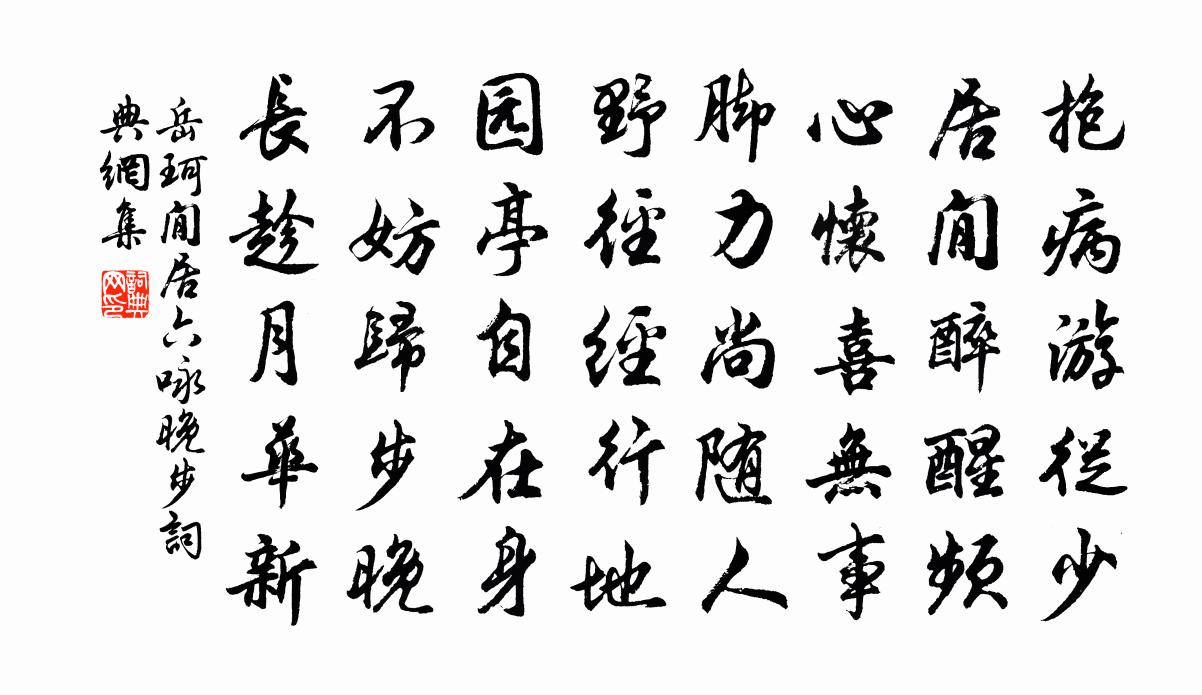 抱病游從少
居閒醉醒頻
心懷喜無事
脚力尚随人
野徑經行地
园亭自在身
不妨歸步晚
長趁月華新
岳珂閒居六咏晚步詞
典網集
詞典网印